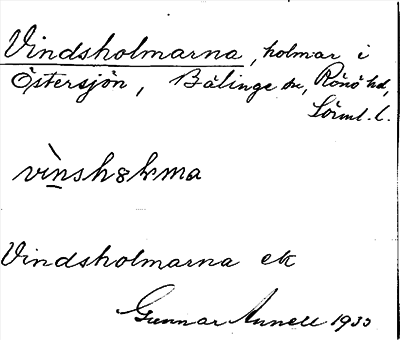 Vindsholmarna, holmar i
Östersjön, Bälinge sn, Rönö hd,
Sörml. l.
vìnshȣḷma
Vindsholmarna ek
Gunnar Annell 1933